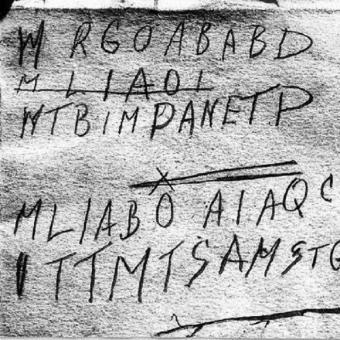 WRGOABABD
MLIAOI
WTBIMPANETP
MLIABOAIAQC
ITTMTSAMSTG